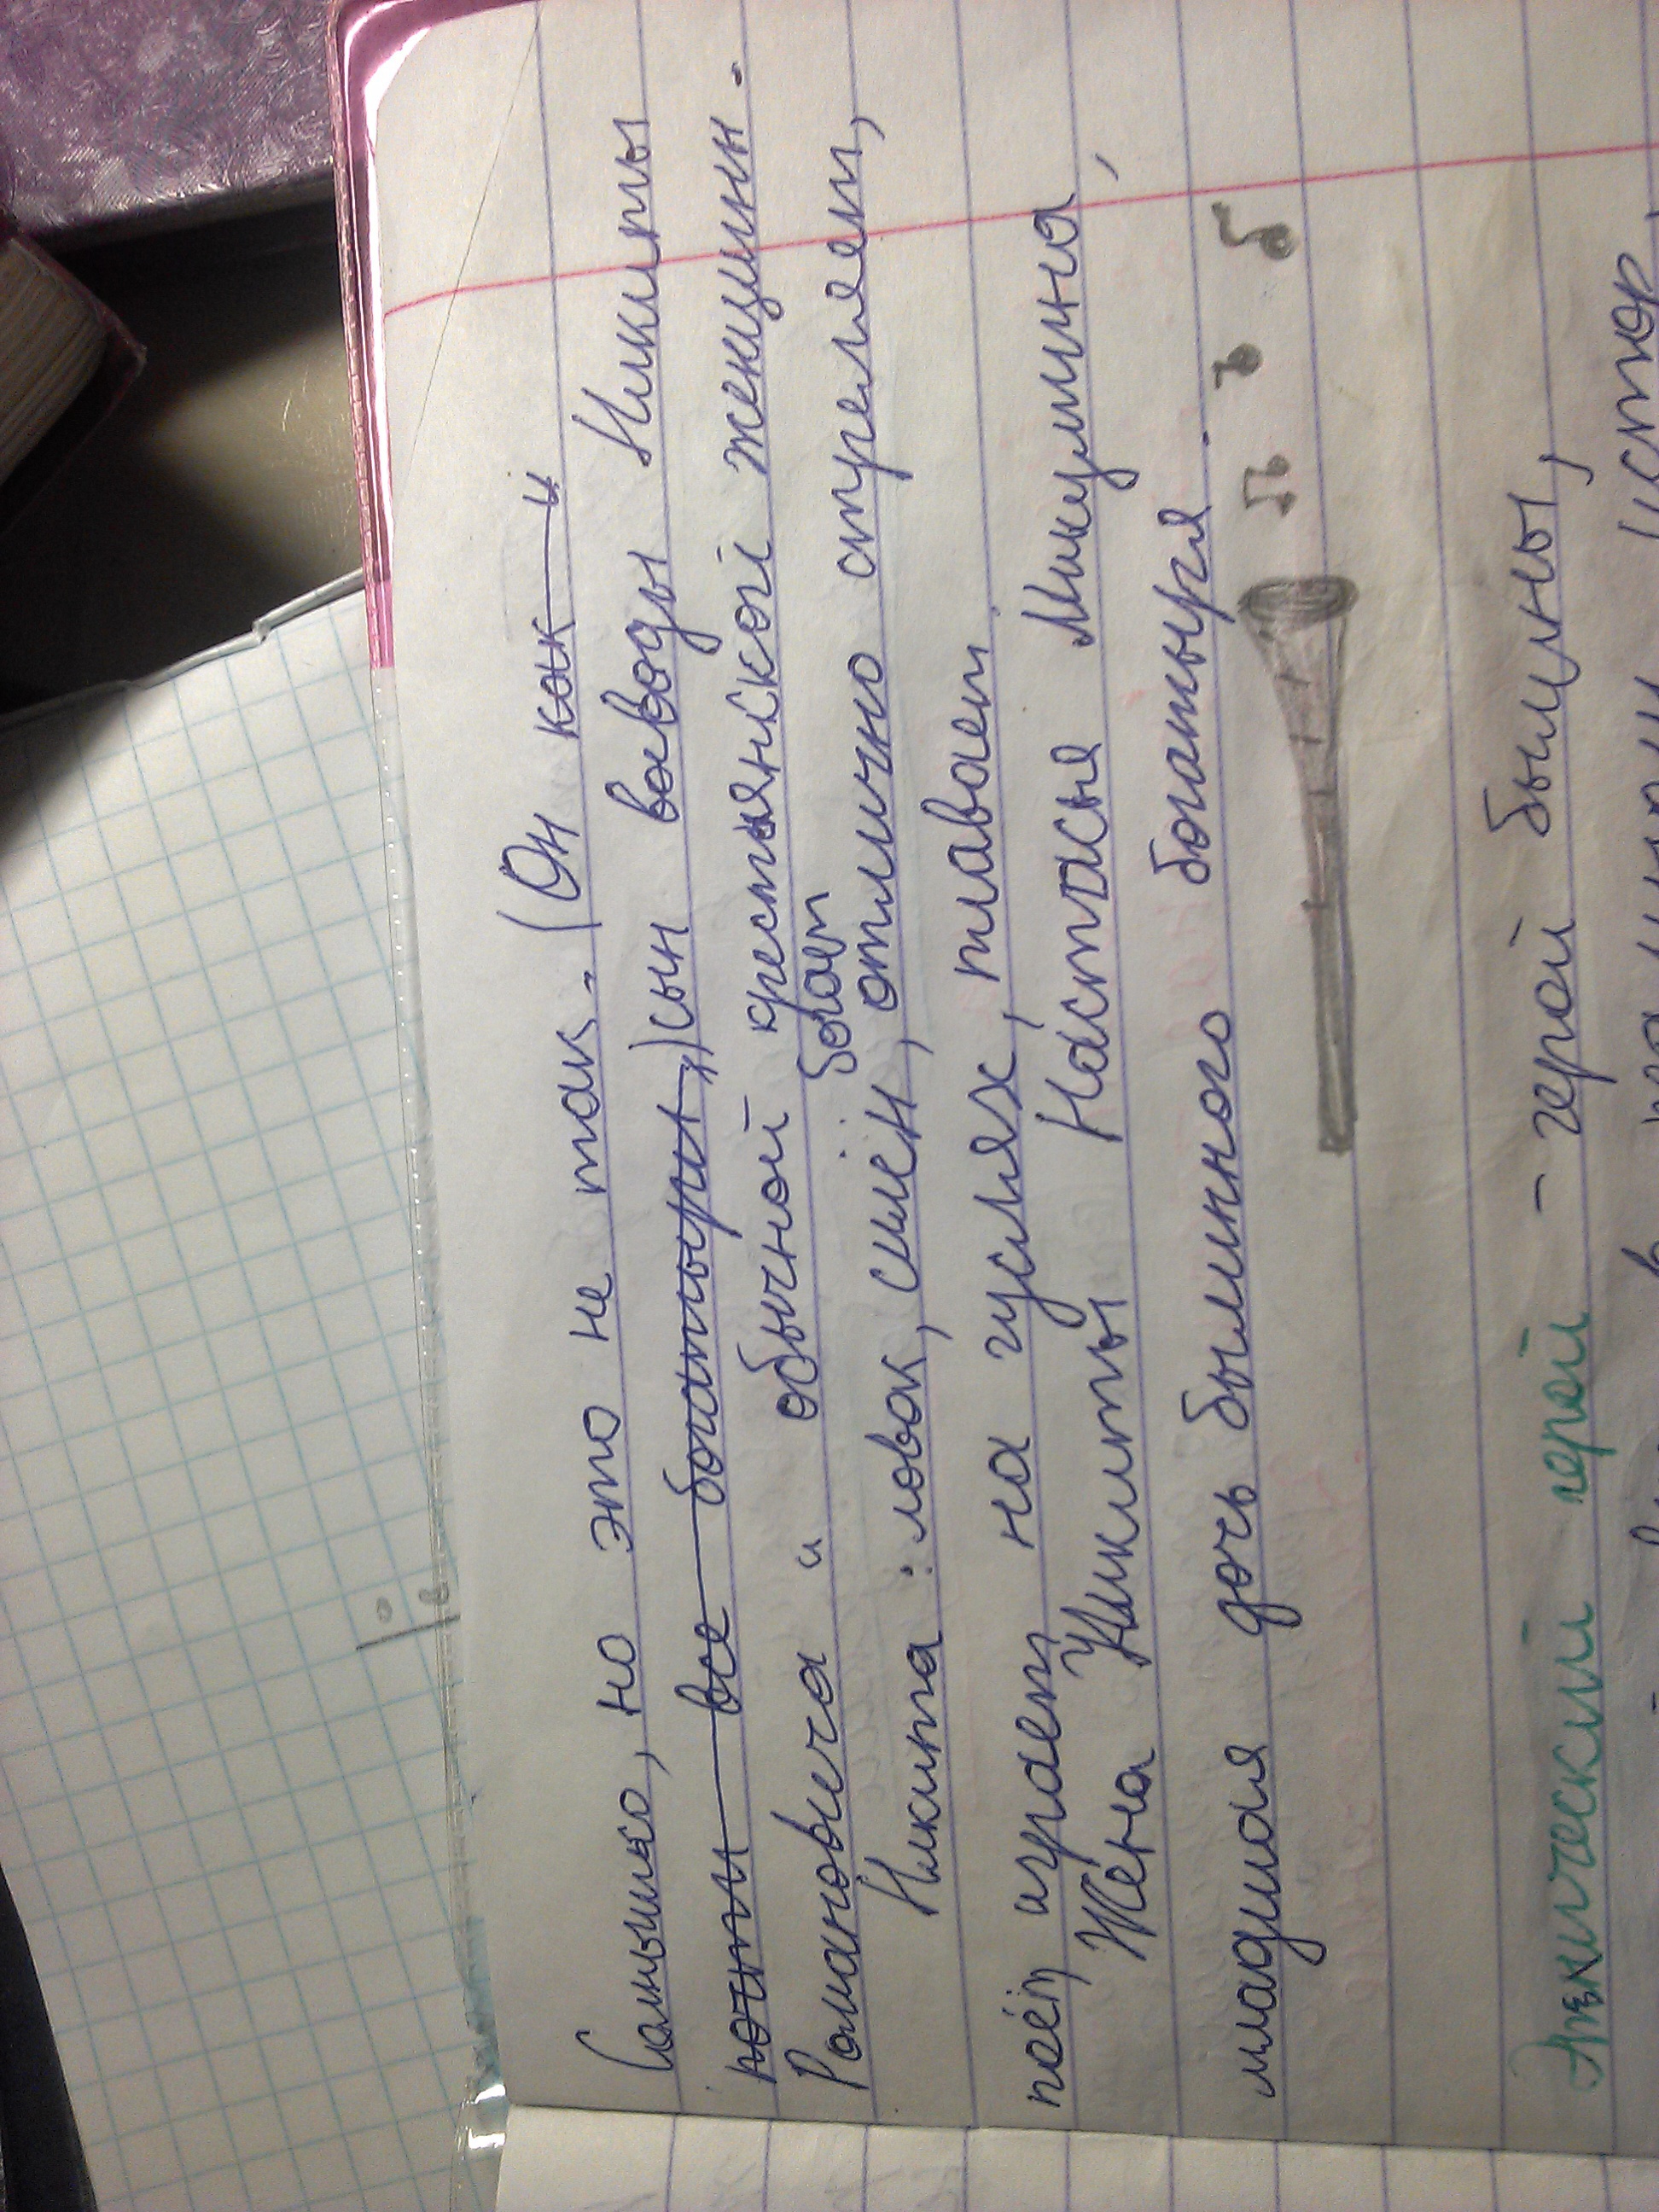 Самышко, но это не так. (Он как и
почти все богатыри,) сын воеводы Никиты
Романовича и обычной крестьянской женщины.
Никита : ловок, силён, богат отлично стреляет,
поёт играет на гуслях, плавает.
Жена Никиты Настасья Микулична,
младшая дочь былинного богатыря.
герой - герой былины,